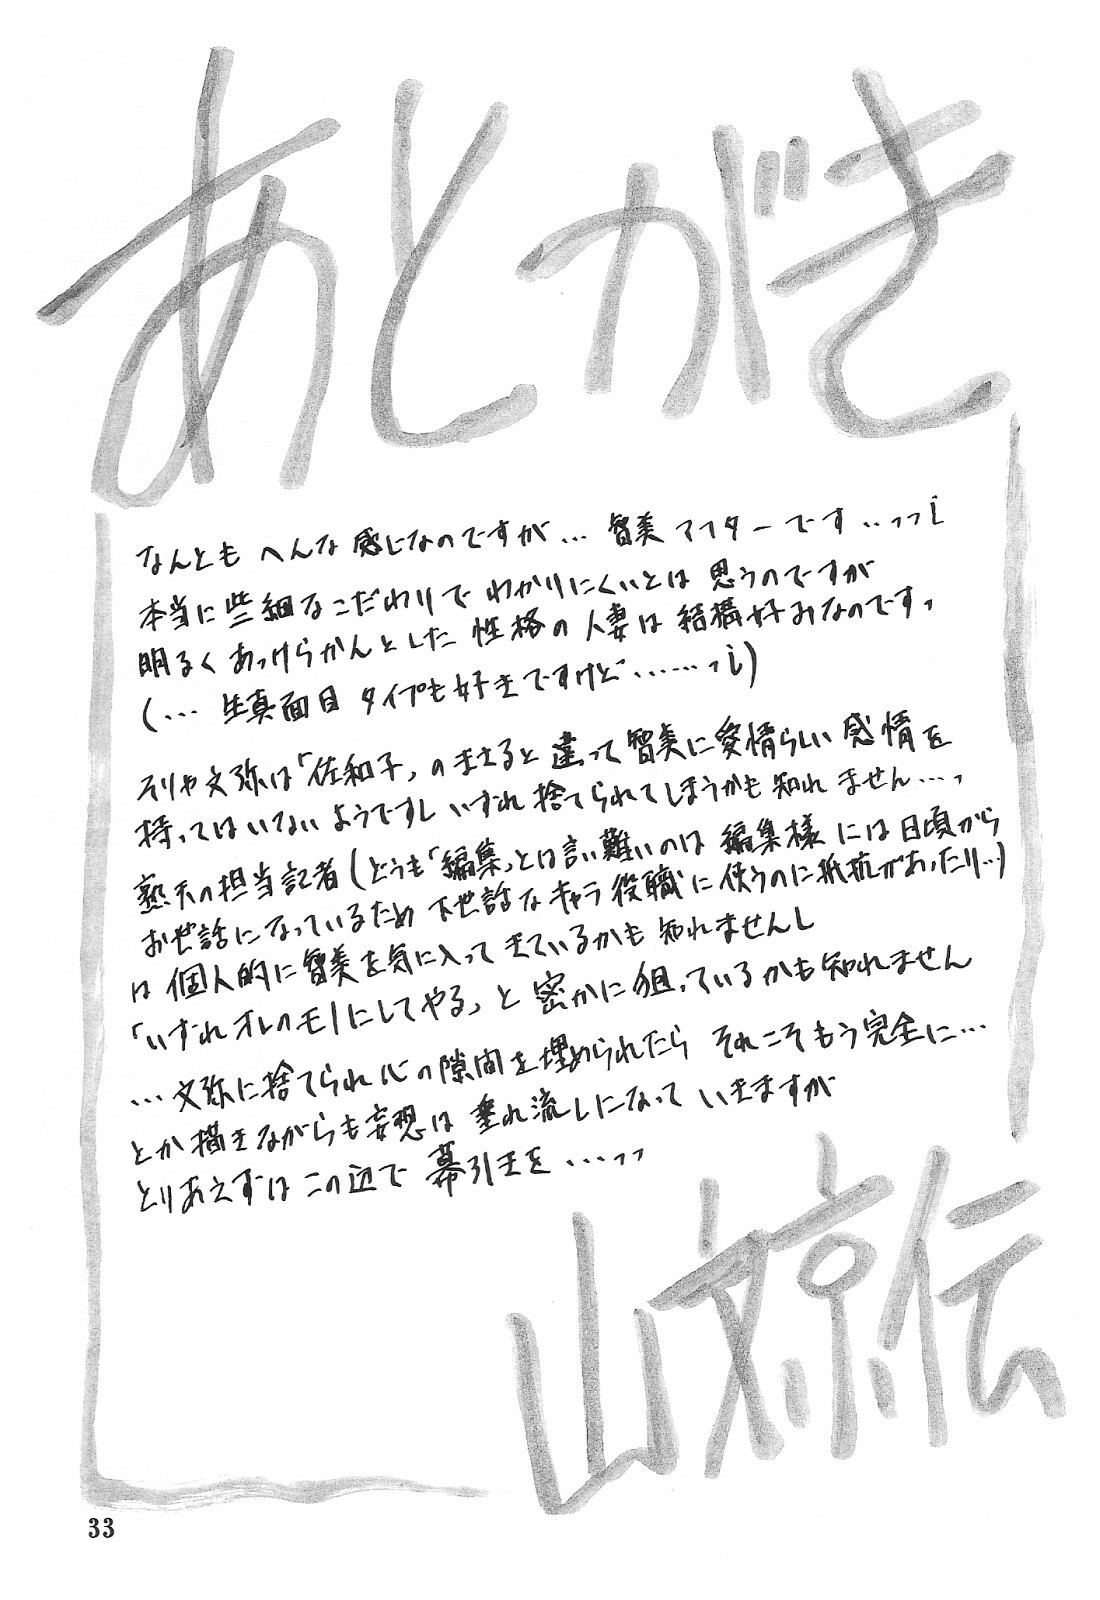 あとがき
なんとも へんな 感じなのですが… 智美アフターです…っっ；
本当に些細なこだわりで わかりにくいとは 思うのですが
明るく あっけらかんとした 性格の 人妻は 結構好みなのですっ
(… 生真面目 タイプも好きですけど……っ；)
そりゃ文弥は「佐和子」のまさると 違って 智美に愛情らしい 感情を
持ってはいない ようですし いずれ 捨てられてしまうかも 知れ ません…っ
熟天の担当記者(どうも「編集」とは言い難いのは 編集様 には 日頃から
お世話になっているため 下世話な キャラ 役職に 使うのに抵抗があったり…)
は 個人的に智美を気に入って きているかも 知れませんし
「いずれ オレのモノにしてやる」と 密かに狙っているかも知れません
… 文弥に捨てられ 心の隙間を埋められたら それこそもう完全に…
とか描きながらも妄想は 垂れ流しになって いきますが
とりあえずは この辺で 幕引きを …っっ
山文京伝
33